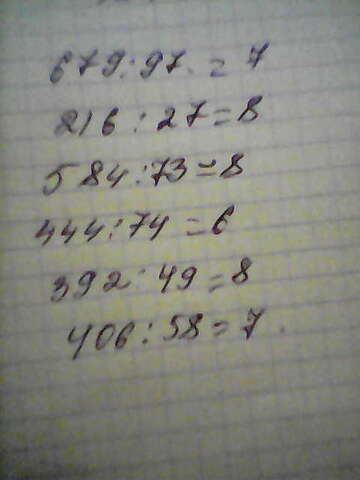 679:97=7
216:27=8
584:73=8
444:74=6
392:49=8
406:58=7.